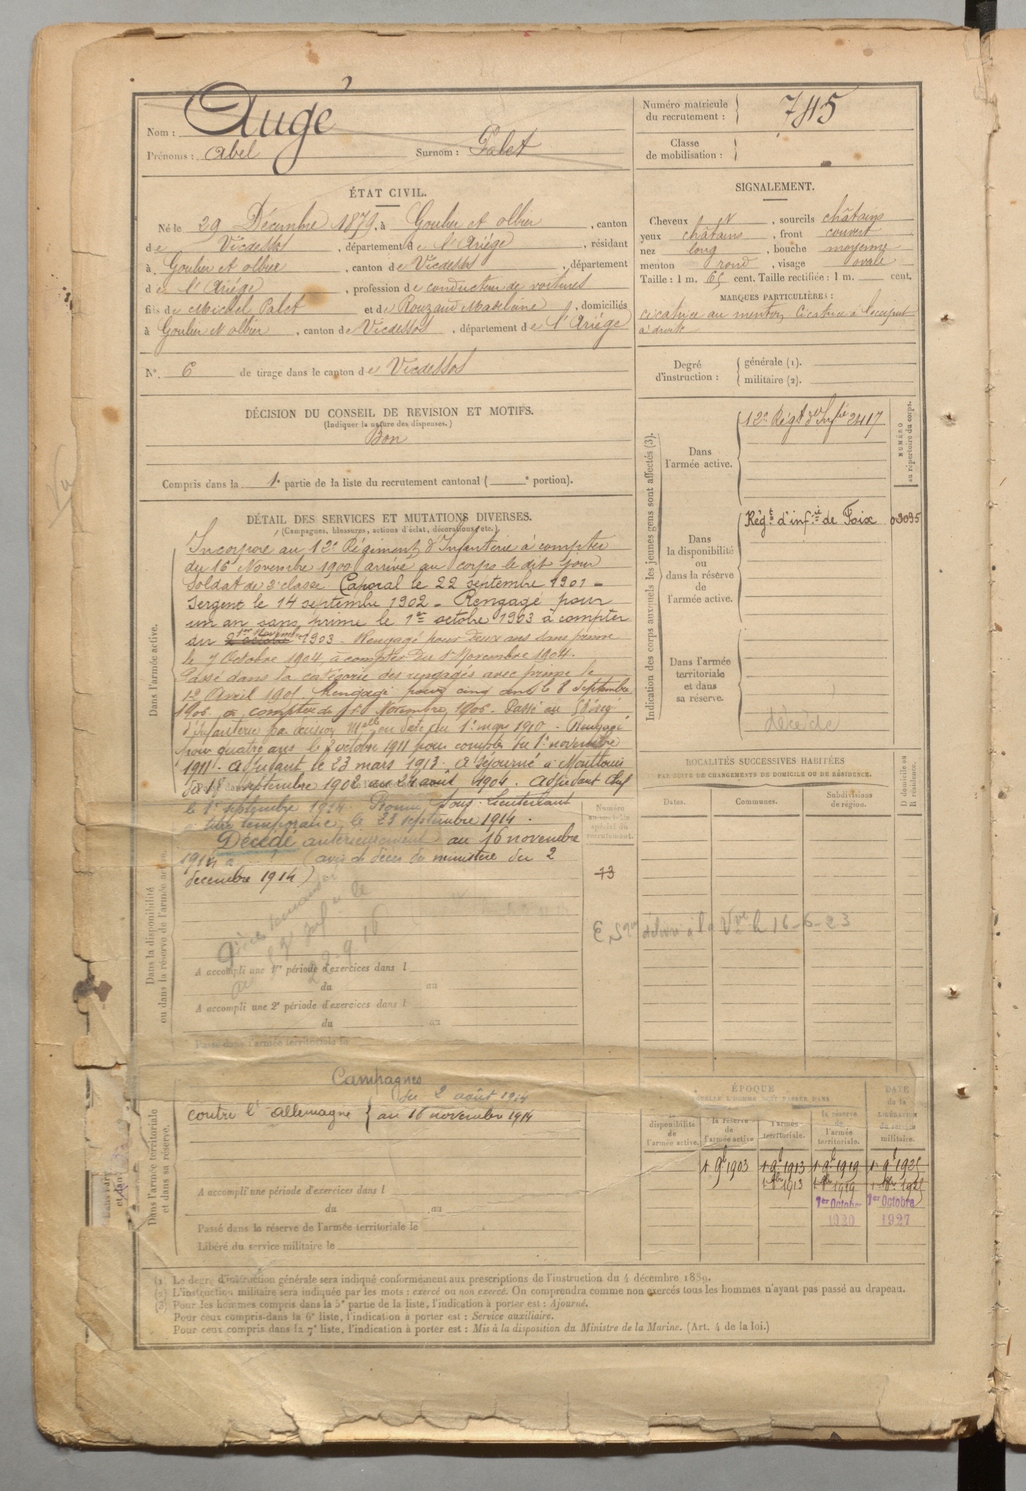 Nom : Augé
Prénoms : Abel Surnom : Palet
Numéro matricule du recrutement : 745
Classe de mobilisation :
ÉTAT CIVIL.
Né le 29 Décembre 1879, à Goulier et Olbier, canton
de Vicdessos, département de l'Ariège, résidant
à Goulier et Olbier, canton de Vicdessos, département
de l'Ariège, profession de conducteur de voitures
fils de Michel Palet et de Rouzaud Madeleine, domiciliés
à Goulier et Olbier, canton de Vicdessos, département de l'Ariège
N° 6 de tirage dans le canton de Vicdessos
SIGNALEMENT.
Cheveux , sourcils châtains
yeux châtains, front couvert
nez long, bouche moyenne
menton rond, visage ovale
Taille : 1 m. 65 cent. Taille rectifiée : 1 m. cent.
MARQUES PARTICULIÈRES :
cicatrice au menton, cicatrice à l'occiput
à droite
Degré d'instruction : générale (1).
militaire (2).
DÉCISION DU CONSEIL DE REVISION ET MOTIFS.
(Indiquer la nature des dispenses.)
Bon
Compris dans la 1e partie de la liste du recrutement cantonal ( e portion).
Indication des corps auxquels les jeunes gens sont affectés (3).
NUMÉRO au répertoire du corps.
Dans l'armée active.
12e Régt d'Infie 2417
Dans la disponibilité ou dans la réserve de l'armée active.
Régt d'infie de Foix 03095
Dans l'armée territoriale et dans sa réserve.
décédé
DÉTAIL DES SERVICES ET MUTATIONS DIVERSES.
(Campagnes, blessures, actions d'éclat, décorations, etc.)
Dans l'armée active.
Incorporé au 12e Régiment d'Infanterie à compter
du 16 Novembre 1900, arrivé au corps le dit jour
soldat de 2e classe. Caporal le 22 septembre 1901 -
Sergent le 14 septembre 1902 - Rengagé pour
un an sans prime le 1er octobre 1903 à compter
du 1er novembre 1903 - Rengagé pour deux ans sans prime
le 7 Octobre 1904 à compter du 1er Novembre 1904.
Passé dans la catégorie des rengagés avec prime le
12 Avril 1905. Rengagé pour cinq ans le 8 septembre
1906 à compter du 1er Novembre 1906. Passé au
d'infanterie par décision melle en date du 1er mars 1910 - Rengagé
pour quatre ans le 3 octobre 1911 pour compter du 1er novembre
1911 - Adjudant le 23 mars 1913 - A séjourné à Montlouis
du 18 septembre 1902 au 24 août 1904. Adjudant Chef
le 1er septembre 1914. Promu sous-lieutenant
à titre temporaire, le 23 septembre 1914.
Dans la disponibilité ou dans la réserve de l'armée active.
Décédé antérieurement au 16 novembre
1914 à (avis de décès du ministère du 2
décembre 1914)
13
22-9-16
A accompli une 1re période d'exercices dans l
du au
A accompli une 2e période d'exercices dans l
du au
Passé dans l'armée territoriale le
LOCALITÉS SUCCESSIVES HABITÉES
PAR SUITE DE CHANGEMENTS DE DOMICILE OU DE RÉSIDENCE.
Dates. Communes. Subdivisions de région. D domicile ou R résidence.
délivré à la Vve le 16-6-23
Dans l'armée territoriale et dans sa réserve.
Campagnes
contre l'Allemagne du 2 août 1914
au 16 novembre 1914
A accompli une période d'exercices dans l
du au
Passé dans la réserve de l'armée territoriale le
Libéré du service militaire le
ÉPOQUE
disponibilité de l'armée active. la réserve de l'armée active l'armée territoriale. la réserve de l'armée territoriale. DATE de la LIBÉRATION du service militaire.
1er Octobre 1920 1er Octobre 1927
(1) Le degré d'instruction générale sera indiqué conformément aux prescriptions de l'instruction du 4 décembre 1889.
(2) L'instruction militaire sera indiquée par les mots : exercé ou non exercé. On comprendra comme non exercés tous les hommes n'ayant pas passé au drapeau.
(3) Pour les hommes compris dans la 5e partie de la liste, l'indication à porter est : Ajourné.
Pour ceux compris dans la 6e liste, l'indication à porter est : Service auxiliaire.
Pour ceux compris dans la 7e liste, l'indication à porter est : Mis à la disposition du Ministre de la Marine. (Art. 4 de la loi.)